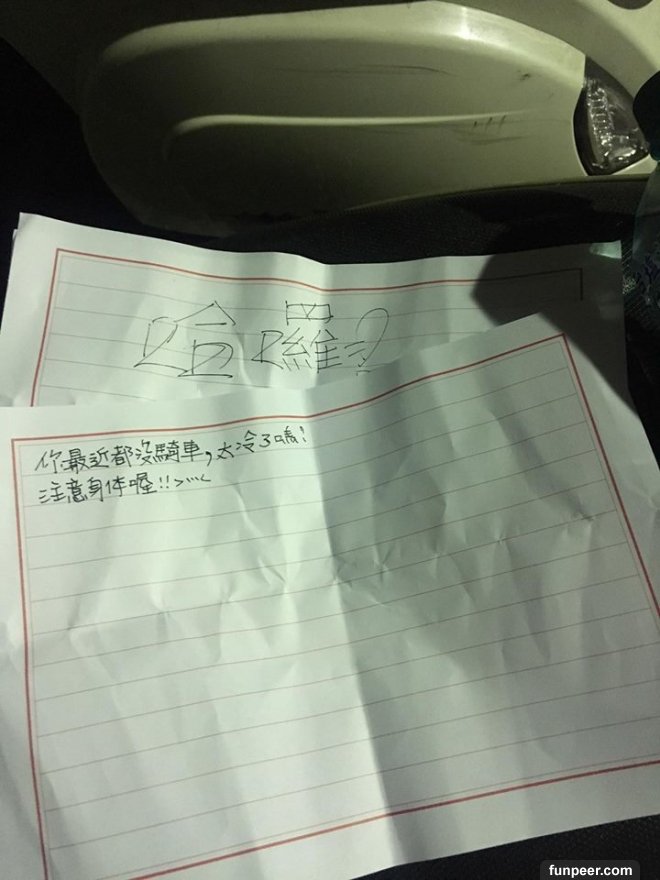 哈囉?
你最近都沒騎車,太冷了嗎?
注意身体喔!!>"""<
funpeer.com